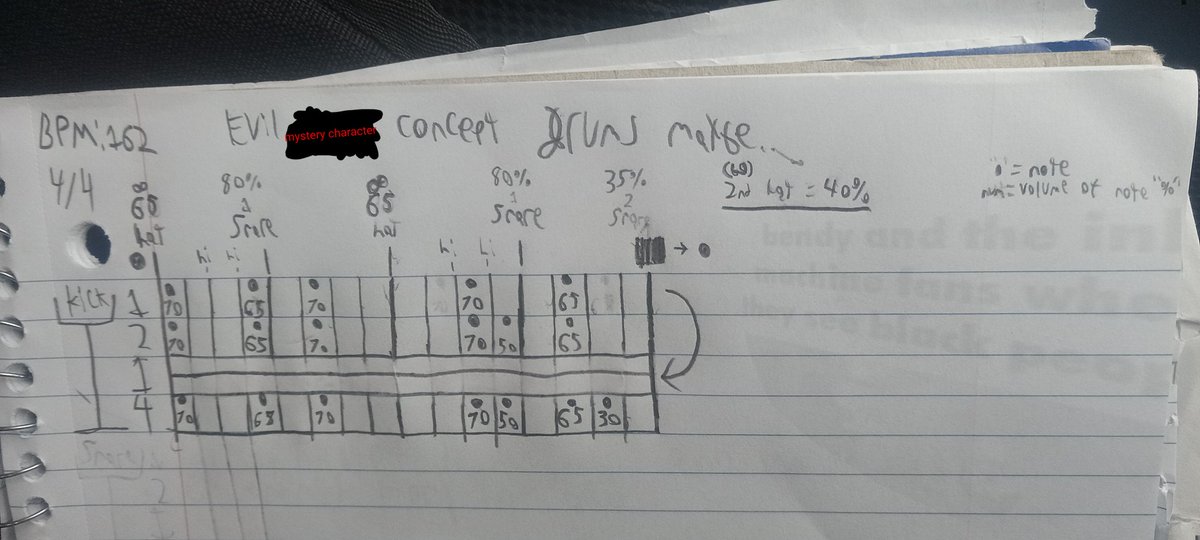 BPM:162
EVil mystery character concept Druns makse...
4/4
∞ 65 hat
80% 1 Snore
∞ 65 hat
80% 1 Snare
35% 2 Snare
(60)
2nd hat = 40%
"o" = note
num = volume of note "%"
hi hi hi hi
→
kick 1 70 65 70 70 65
2 70 65 70 70 50 65
1
4 70 65 70 70 50 65 30
Snare
2
bendy and the in
machine fans whe